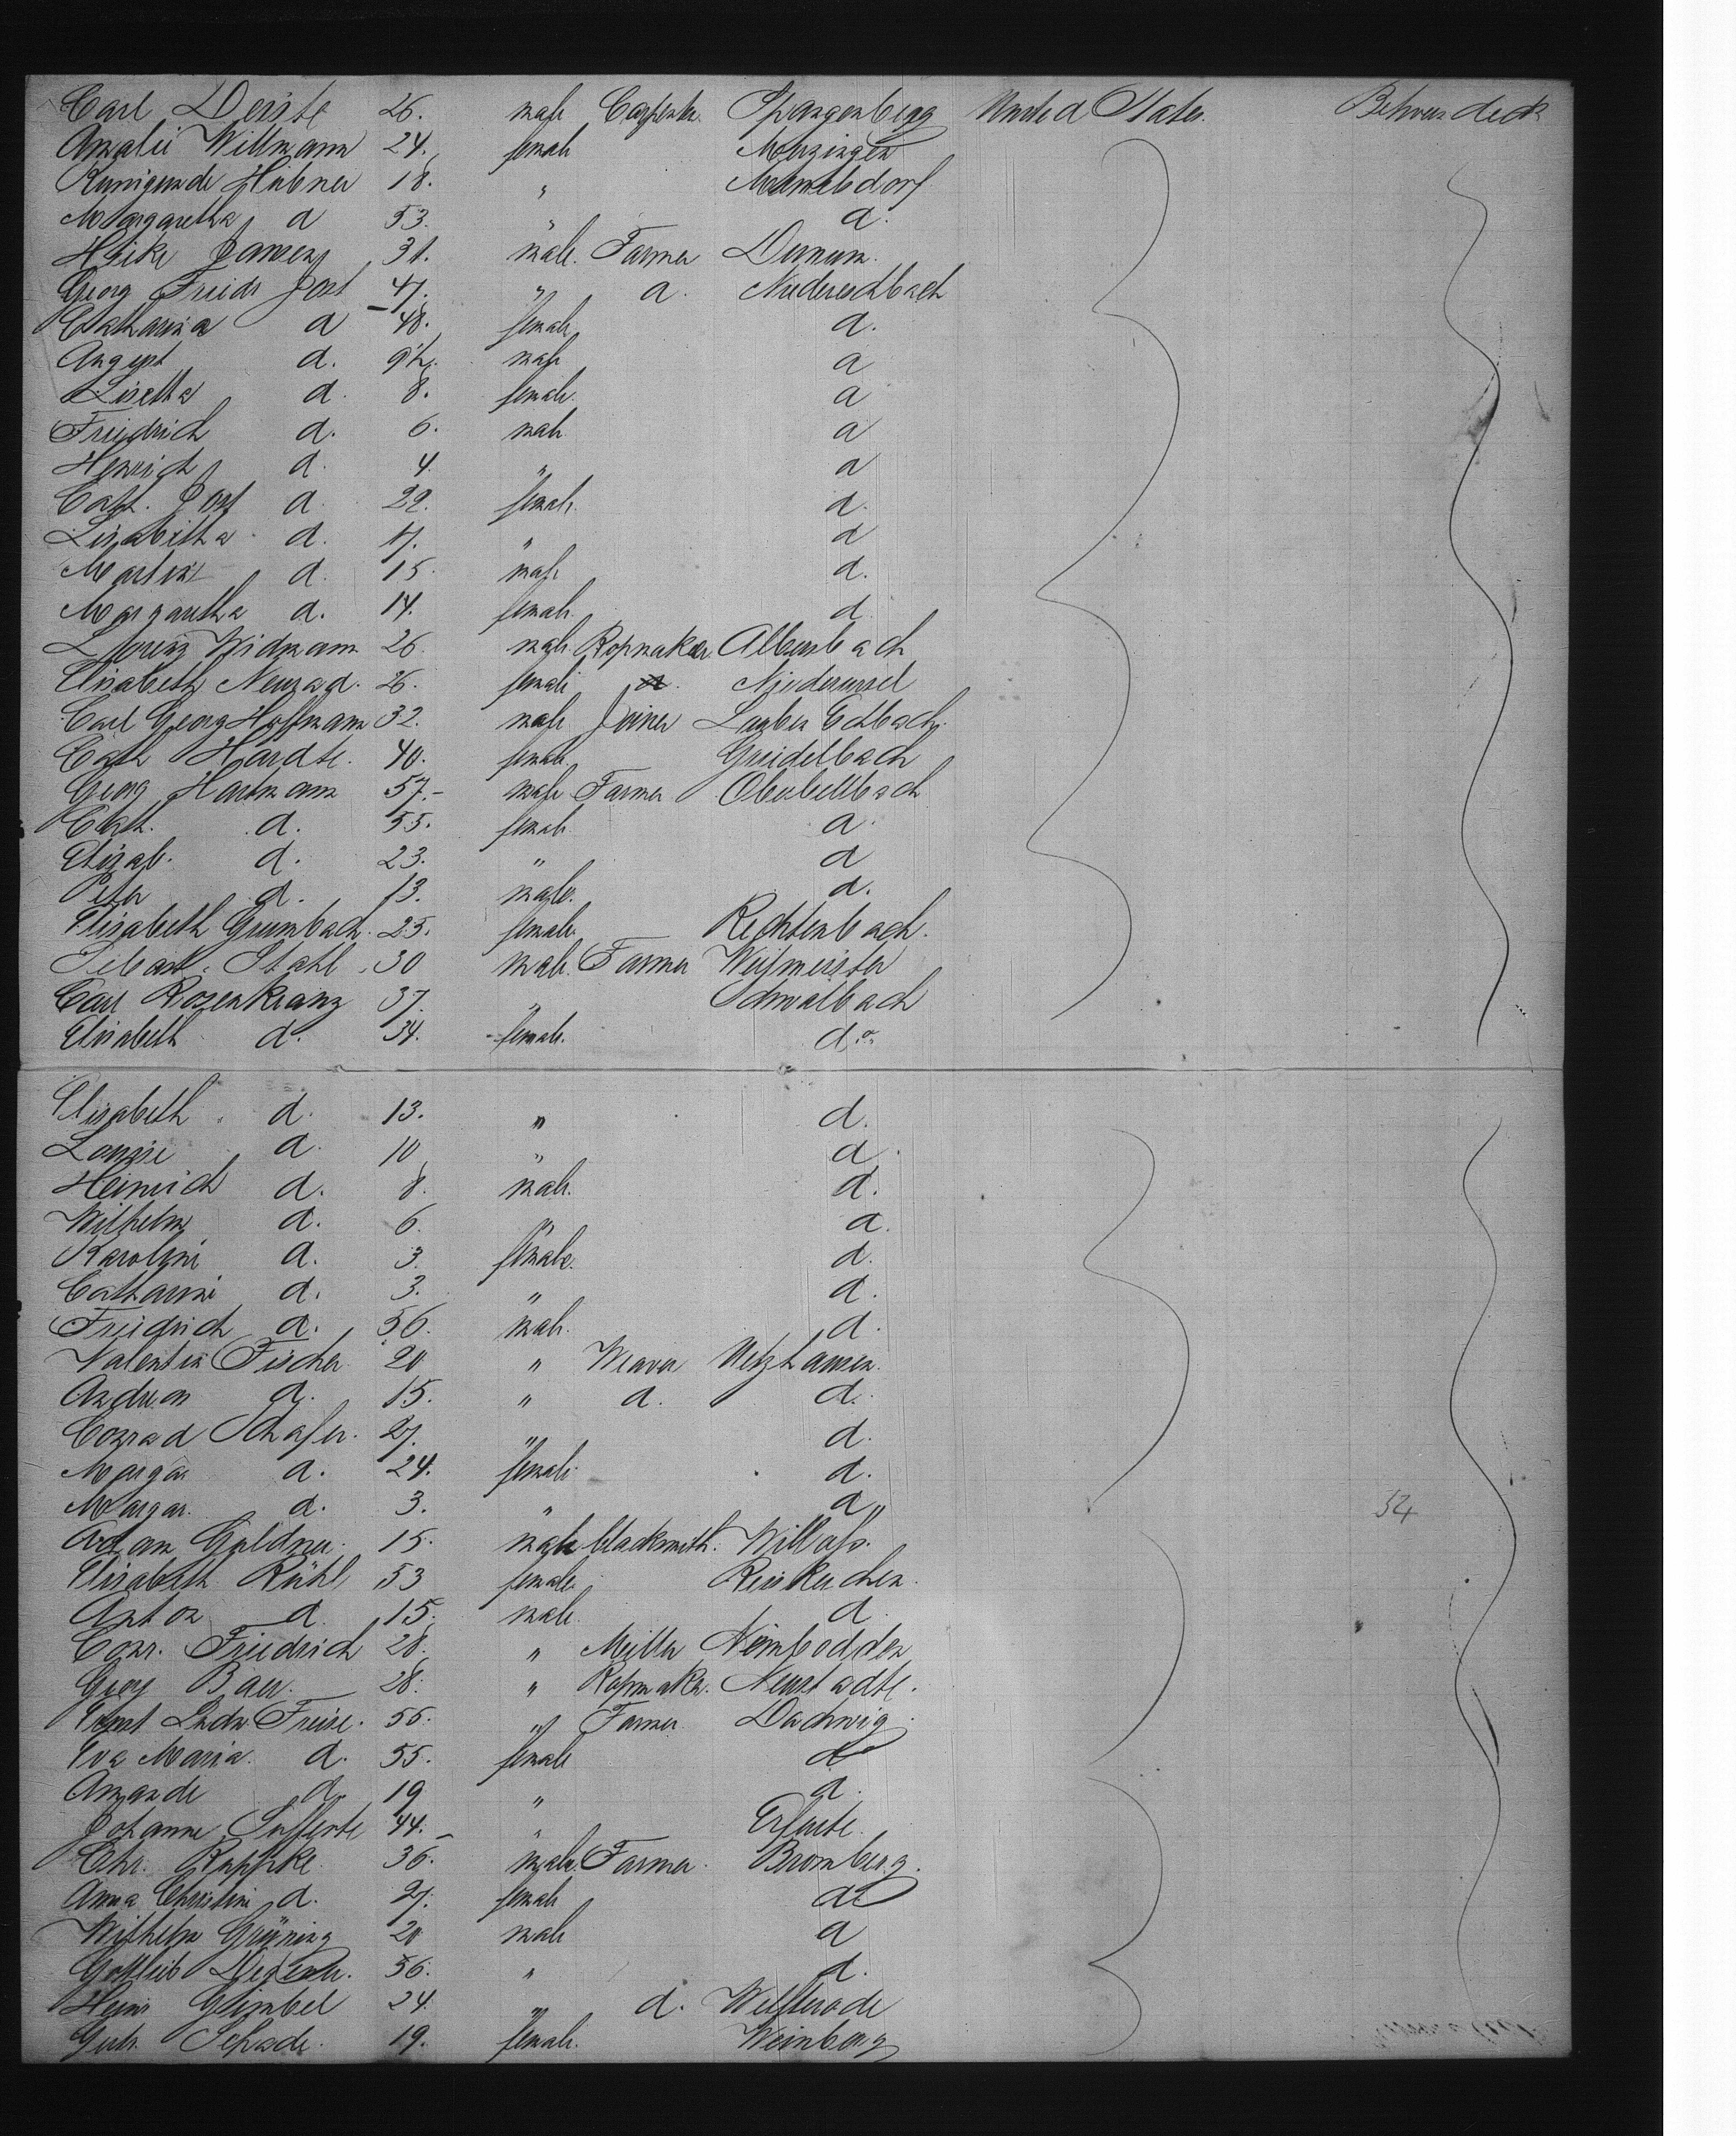 Carl Deiste 26. male Carpenter. Spangenberg United States. Between deck
Amalie Willmann 24. female Merzingen
Kunigunde Hübner 18. "
Margaretha d 53. " d.
Heike Jansen 31. male. Farmer Dunum.
Georg Friedr Jost 47. " d. Niedereschbach
Catharina d 48. female d.
August d. 9½. male d
Lisetta d. 8. female. d
Friedrich d. 6. male d
Henrich d. 4. " d
Cath. Jost d. 22. female. d.
Lisabetha d. 17. " d
Martin d. 15. male d.
Margaretha d. 14. female. d.
Lorenz Widmann 26. male. Ropmaker. Albersbach
Elisabeth 26. female Niederursel
Carl Georg Hoffmann 32. male Joiner
Cath Hardte. 40. female. Greidelbach
Georg Hartmann 57. male Farmer Oberbellbach
Cath. d. 55. female d.
Elisab. d. 23. " d
Peter d. 13. male. d.
Elisabeth Grumbach. 25. female. Rechtenbach.
Sebast. Stahl. 30 male. Farmer
Carl Rosenkranz 37. " Schwalbach
Elisabeth d. 34. female. do.
Elisabeth d. 13. " d.
Louise d. 10 " d.
Heinrich d. 8. male. d.
Wilhelm d. 6. " d.
Karoline d. 3. female. d.
Catharine d. 3. " d.
Friedrich d. 36. male. d.
Valentin Fischer 20 " Weaver
Andreas d. 15. " d. d.
Conrad Schafer. 27. " d.
Margar d. 24. female. d.
Margar. d. 3. " d " 34
Adam Geldner. 15. male blacksmith. Willofs.
Elisabeth Rühl 53 female. Reiskirchen.
Anton d. 15. male. d
Conr. Friedrich 28. " Miller
Georg Baer. 28. " Ropmaker. Neustadte.
Ernst Ludw. Freise. 56. " Farmer Dachwig.
Eva Maria. d. 55. female do
Amande d. 19 " d.
Johanne 44. " Erfurte.
Chr. 36. male. Farmer. Bromberg.
Anna Christine d. 27. female do
Wilhelm Grüning 20 male d
Gottlieb 56. " d.
Heinr Gimbel 24. " d.
Gertr. Schade. 19. female. Weinberg